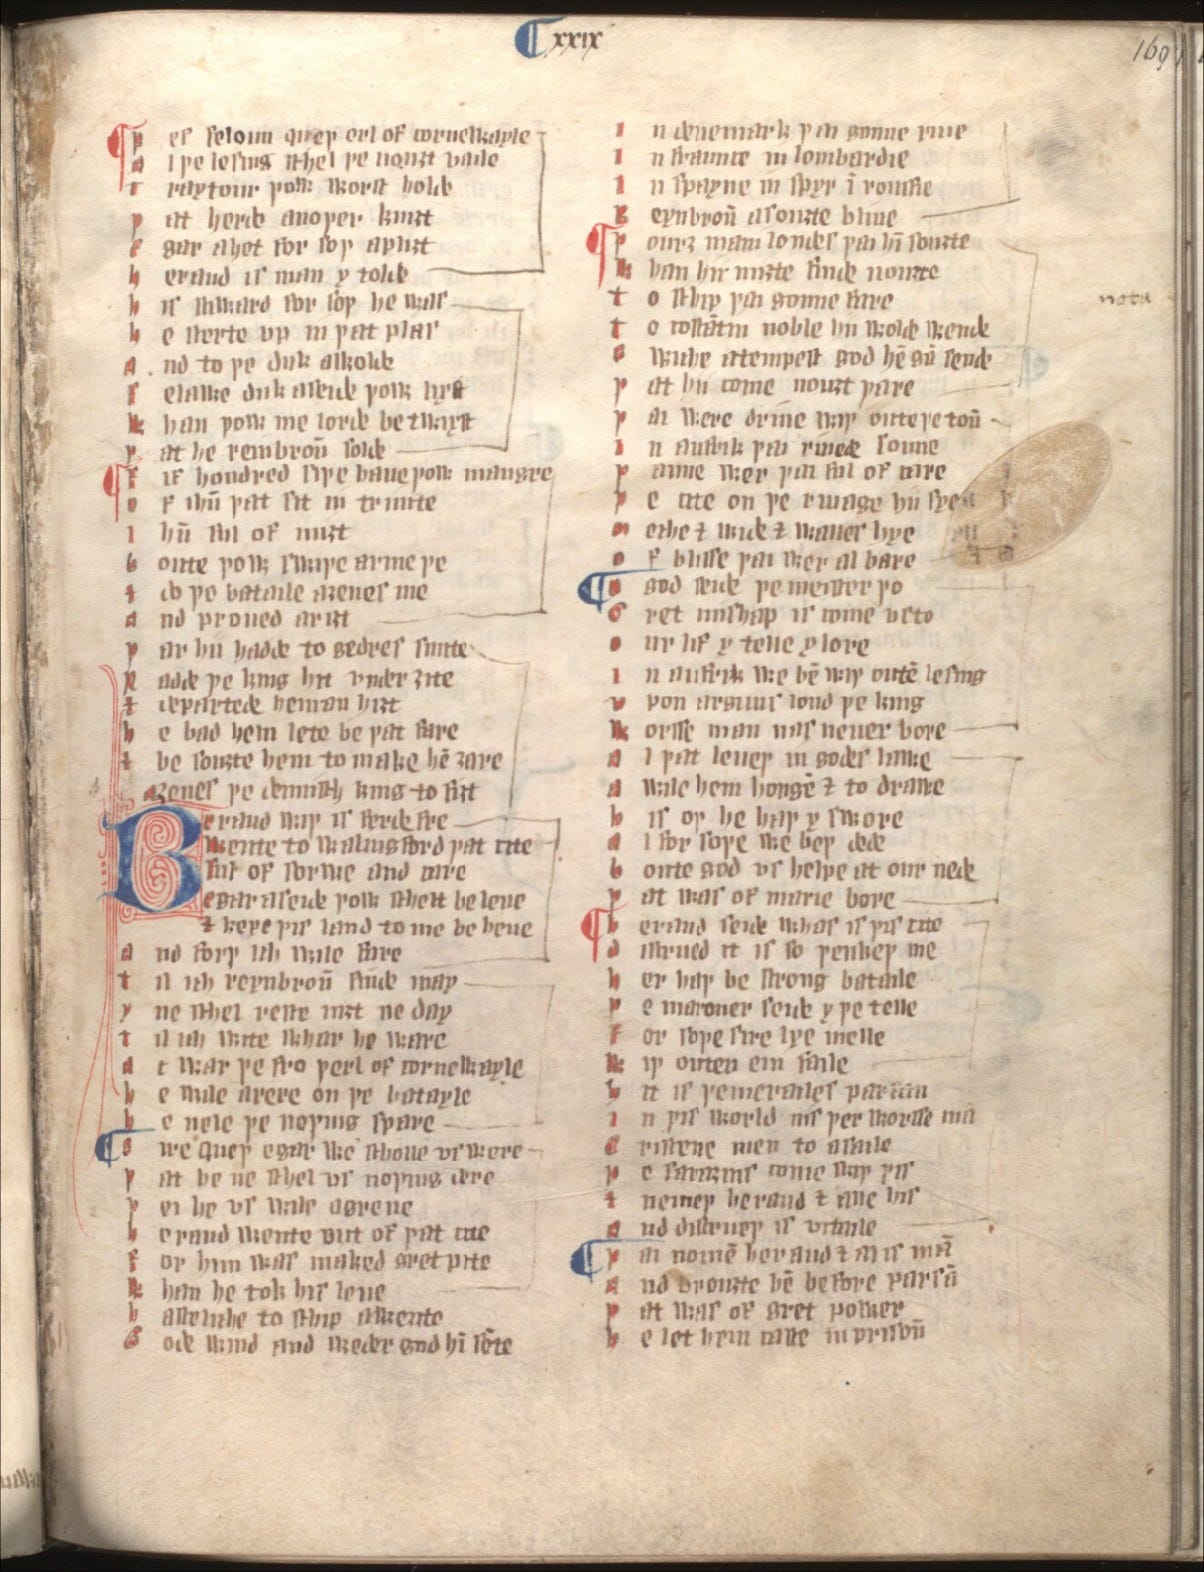 xxix
169
þ es feloun queþ erl of cornewayle
a l þe lesing schel þe nouȝt vaile
t raytour þow worst holde
þ at herde anoþer kniȝt
e gar a het for soþ apliȝt
h eraud is man y tolde
h is stiward for soþ he was
h e sterte vp in þat plas
a nd to þe duk a wolde
f elawe duk a seide þow lixt
w han þow me lord betwixt
þ at he rembroun solde
f if hondred siþe haue þow maugre
o f ihū þat sit in trinite
i hū ful of miȝt
b oute þow swiþe arme þe
⁊ do þe bataile aȝenes me
a nd proued ariȝt
þ ar hii hadde to gedres smite
n adde þe king hit vnder ȝite
⁊ departede hem an hiȝt
h e bad hem lete be þat fare
⁊ be souȝte hem to make hē ȝare
aȝenes þe dennisch king to fiȝt
H eraud wiþ is ferde fre
wente to walingford þat cite
ful of sorwe and care
egar a seide þow schelt beleue
⁊ kepe þis land to me be heue
a nd forþ ich wile fare
t il ich reynbroū finde may
y ne schel reste niȝt ne day
t il ich wite whar he ware
a t war þe fro þerl of cornewayle
h e wile arere on þe batayle
h e nele þe noþing spare
s ire queþ egar we scholle vs were
þ at he ne schel vs noþing dere
þ ei he vs wile agreue
h eraud wente out of þat cite
f or him was maked gret pite
w han he tok his leue
h astliche to schip a wente
G ode wind and weder god hī sēte
i n denemark þai gonne riue
i n fraunce in lombardie
i n spayne in spyr ī roussie
R eynbroū a souȝte bliue
þ ourȝ mani londes þai hī souȝte
w han hii miȝte finde nouȝte
t o schip þai gonne fare
t o costātin noble hii wolde wende
s wiche a tempest god hē gā sende
þ at hii come nouȝt þare
þ ai were driue wiþ oute þe toū
i n aufrik þai riuede soune
þ anne wer þai ful of care
þ e cite on þe riuage hii
e che ⁊ wide ⁊ waues hye
o f blisse þai wer al bare
o god seide þe mester þo
G ret mishap is come vs to
o ur lif y telle y lore
i n aufrik we bē wiþ outē lesing
v pon argus lond þe king
w orsse man nas neuer bore
a l þat leueþ in godes lawe
a wile hem hongē ⁊ to drawe
h is oþ he haþ y swore
a l for soþe we beþ dede
b oute god vs helpe at our nede
þ at was of marie bore
h eraud seide whas is þis cite
a istrued it is so þenkeþ me
h er haþ be strong bataile
þ e maroner seide y þe telle
f or soþe sire lye inelle
w iþ outen eni faile
h it is þemerailes
i n þis world nis þer worsse mā
c ristene men to asaile
þ e sarazins come wiþ þis
⁊ nemeþ heraud ⁊ alle his
a nd distrueþ is vitaile
þ ai nomē heraud ⁊ al is mē
a nd brouȝte hē before
þ at was of gret power
h e let hem caste in prisoū
nota